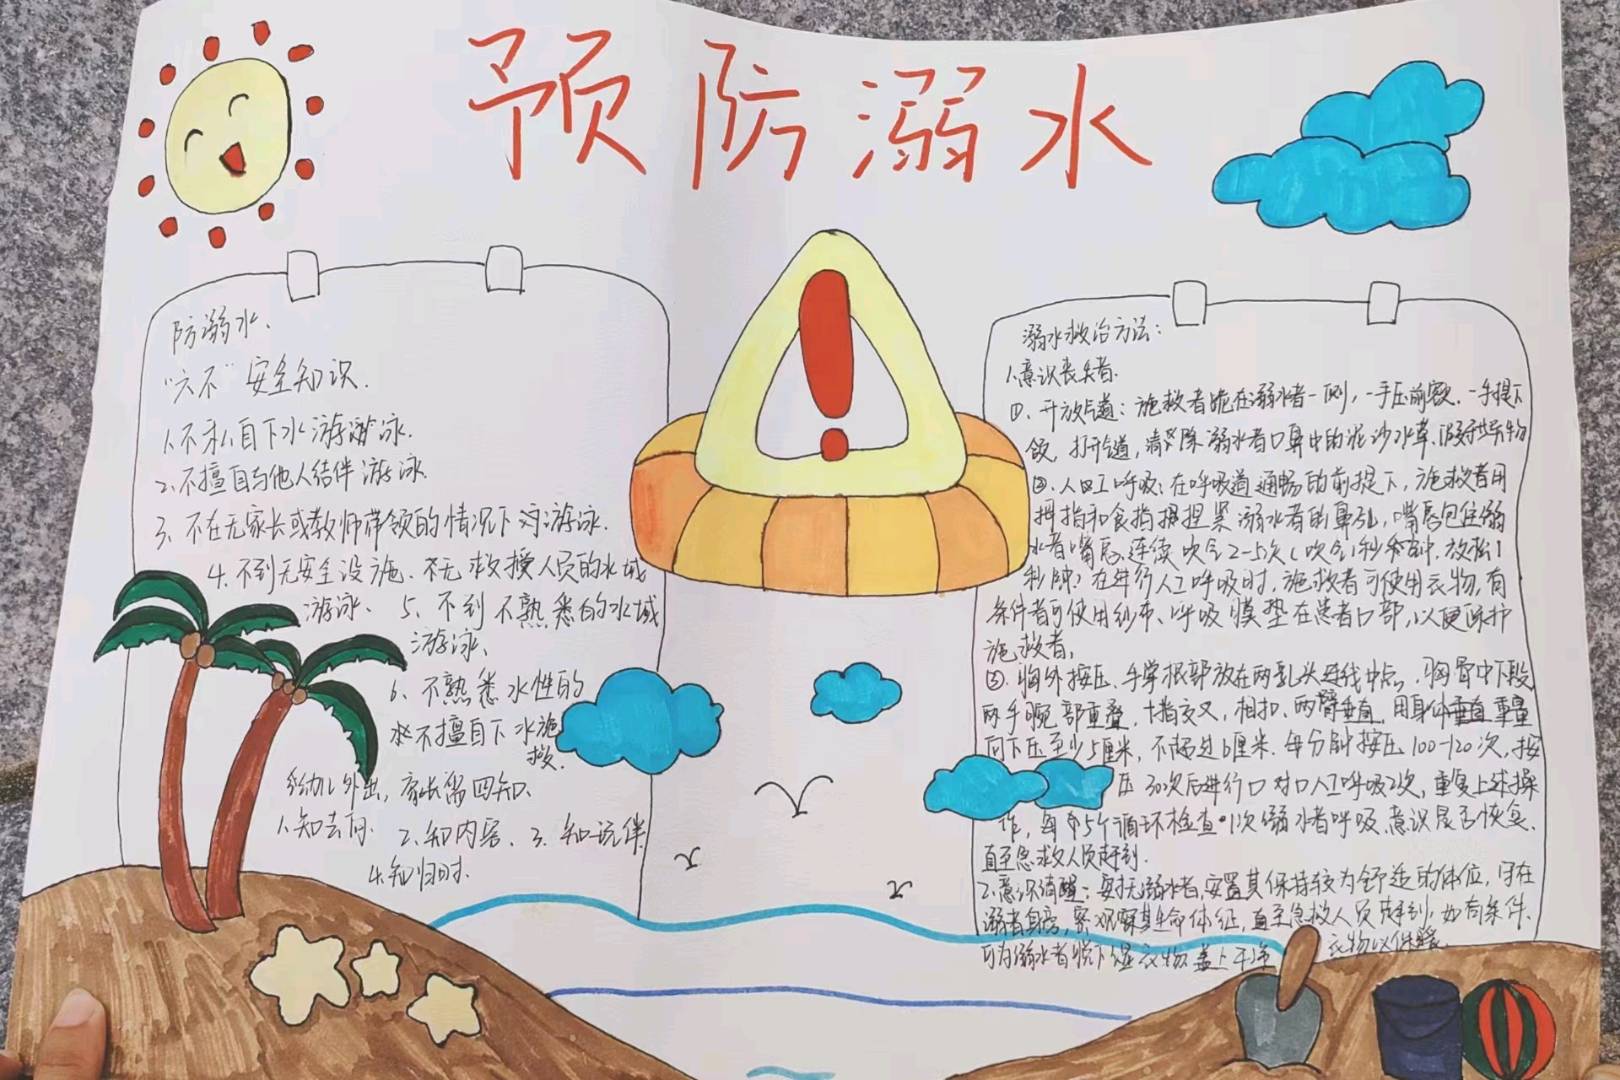 预防溺水
防溺水、
“六不”安全知识.
1.不私自下水游泳.
2.不擅自与他人结伴游泳.
3、不在无家长或教师带领的情况下游泳.
4.不到无安全设施、无救援人员的水域
游泳、5、不到不熟悉的水域
游泳、
6、不熟悉水性的
不擅自下水施
救.
幼儿外出，家长需四知.
1.知去向. 2.知内容、3.知玩伴.
4.知归时.
溺水救治方法：
1.意识丧失者.
①、开放气道：施救者跪在溺水者一侧，一手压前额、一手提下
颌，打开气道，清除溺水者口鼻中的泥沙水草、假牙等异物
②、人工呼吸：在呼吸道通畅的前提下，施救者用
拇指和食指捏紧溺水者的鼻孔，嘴唇包住溺
水者嘴唇、连续吹气2-5次（吹气1秒 放松1
秒）在进行人工呼吸时，施救者可使用衣物，有
条件者可使用纱布、呼吸膜垫在患者口部，以便保护
施救者；
③、胸外按压、手掌根部放在两乳头连线中点、胸骨中下段
两手腕部重叠，十指交叉，相扣、两臂垂直，用身体重量
向下压至少5厘米，不超过6厘米.每分钟按压100-120次，按
压30次后进行口对口人工呼吸2次，重复上述操
作，每5个循环检查1次溺水者呼吸、意识是否恢复、
直至急救人员赶到.
2.意识清醒：安置其保持较为舒适的体位，守在
溺者身旁，密观察其生命体征，直至急救人员赶到，如有条件、
可为溺水者脱下湿衣物盖上干净
衣物以保暖.